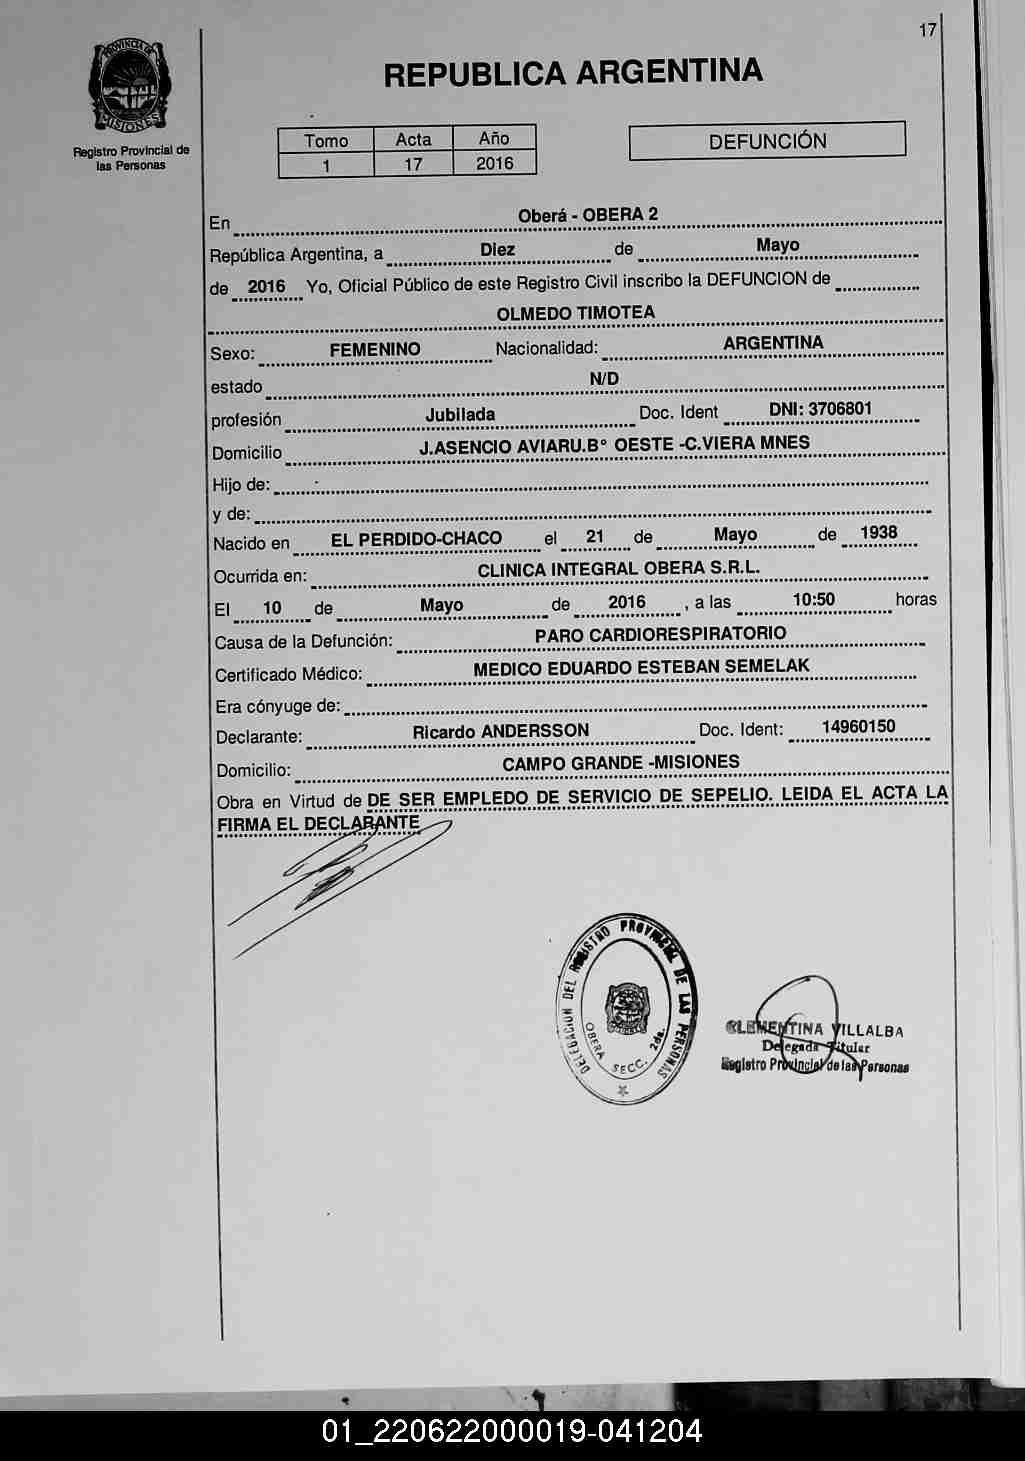 17
PROVINCIA DE
MISIONES
Registro Provincial de
las Personas
REPUBLICA ARGENTINA
Tomo Acta Año
1 17 2016
DEFUNCIÓN
En Oberá - OBERA 2
República Argentina, a Diez de Mayo
de 2016 Yo, Oficial Público de este Registro Civil inscribo la DEFUNCION de
OLMEDO TIMOTEA
Sexo: FEMENINO Nacionalidad: ARGENTINA
estado N/D
profesión Jubilada Doc. Ident DNI: 3706801
Domicilio J.ASENCIO AVIARU.B° OESTE -C.VIERA MNES
Hijo de:
y de:
Nacido en EL PERDIDO-CHACO el 21 de Mayo de 1938
Ocurrida en: CLINICA INTEGRAL OBERA S.R.L.
El 10 de Mayo de 2016 , a las 10:50 horas
Causa de la Defunción: PARO CARDIORESPIRATORIO
Certificado Médico: MEDICO EDUARDO ESTEBAN SEMELAK
Era cónyuge de:
Declarante: Ricardo ANDERSSON Doc. Ident: 14960150
Domicilio: CAMPO GRANDE -MISIONES
Obra en Virtud de DE SER EMPLEDO DE SERVICIO DE SEPELIO. LEIDA EL ACTA LA
FIRMA EL DECLARANTE
DELEGACION DEL REGISTRO PROVINCIAL DE LAS PERSONAS
OBERA SECC. 2da.
CLEMENTINA VILLALBA
Delegada Titular
Registro Provincial de las Personas
01_220622000019-041204